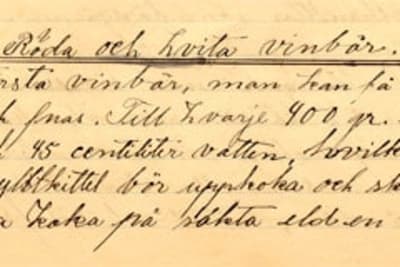 Röda och hvita vinbär.
rsta vinbär, man kan få
h fnas. Till hvarje 400 gr.
45 centiliter vatten, hvilk
syltkittel bör uppkoka och sk
a koka på sakta eld en